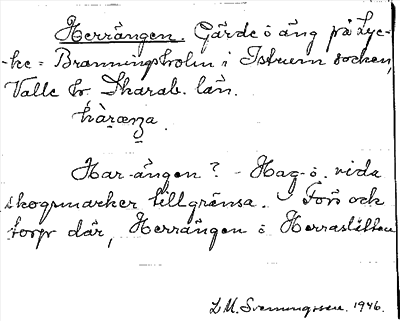 Herrängen. Gärde o äng på Lyc-
-ke = Branningsholm i Istrum socken,
Valle hr. Skarab. län.
hàrænẓa.
Har-ängen? - Hag- o. vida
skogsmarker tillgränsa. Förr ock
torp där, Herrängen o Herraslätten
L. M. Svenungsson. 1946.